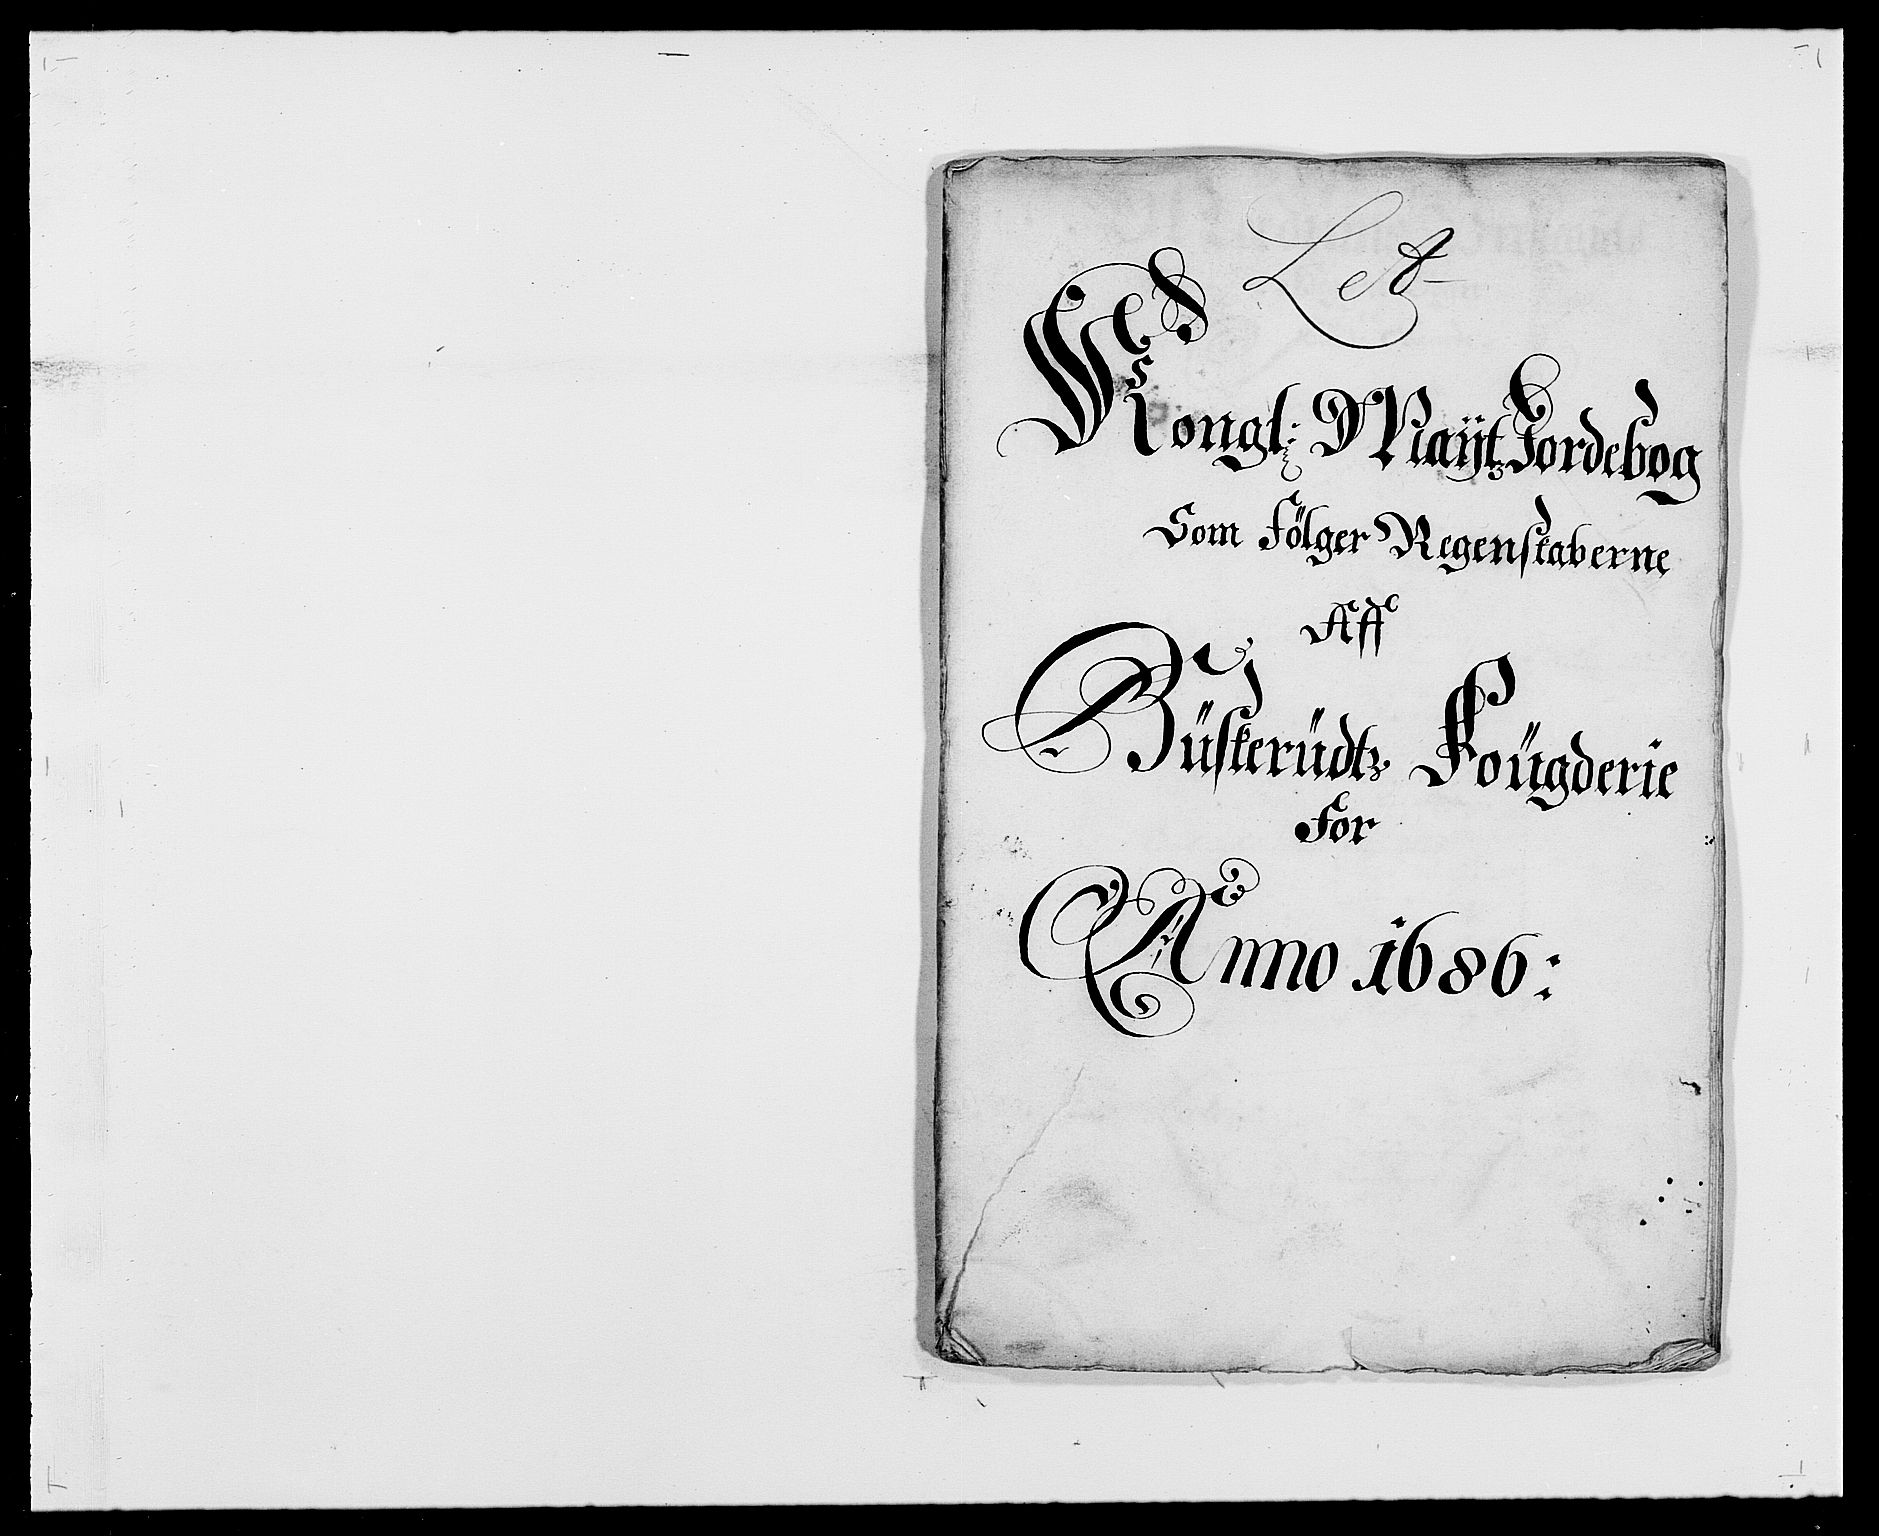 Kongl: Maÿtz Jordebog
Som Fölger Regenskaberne
Aff
Büskerüdtz Foügderie
For
Anno 1686: